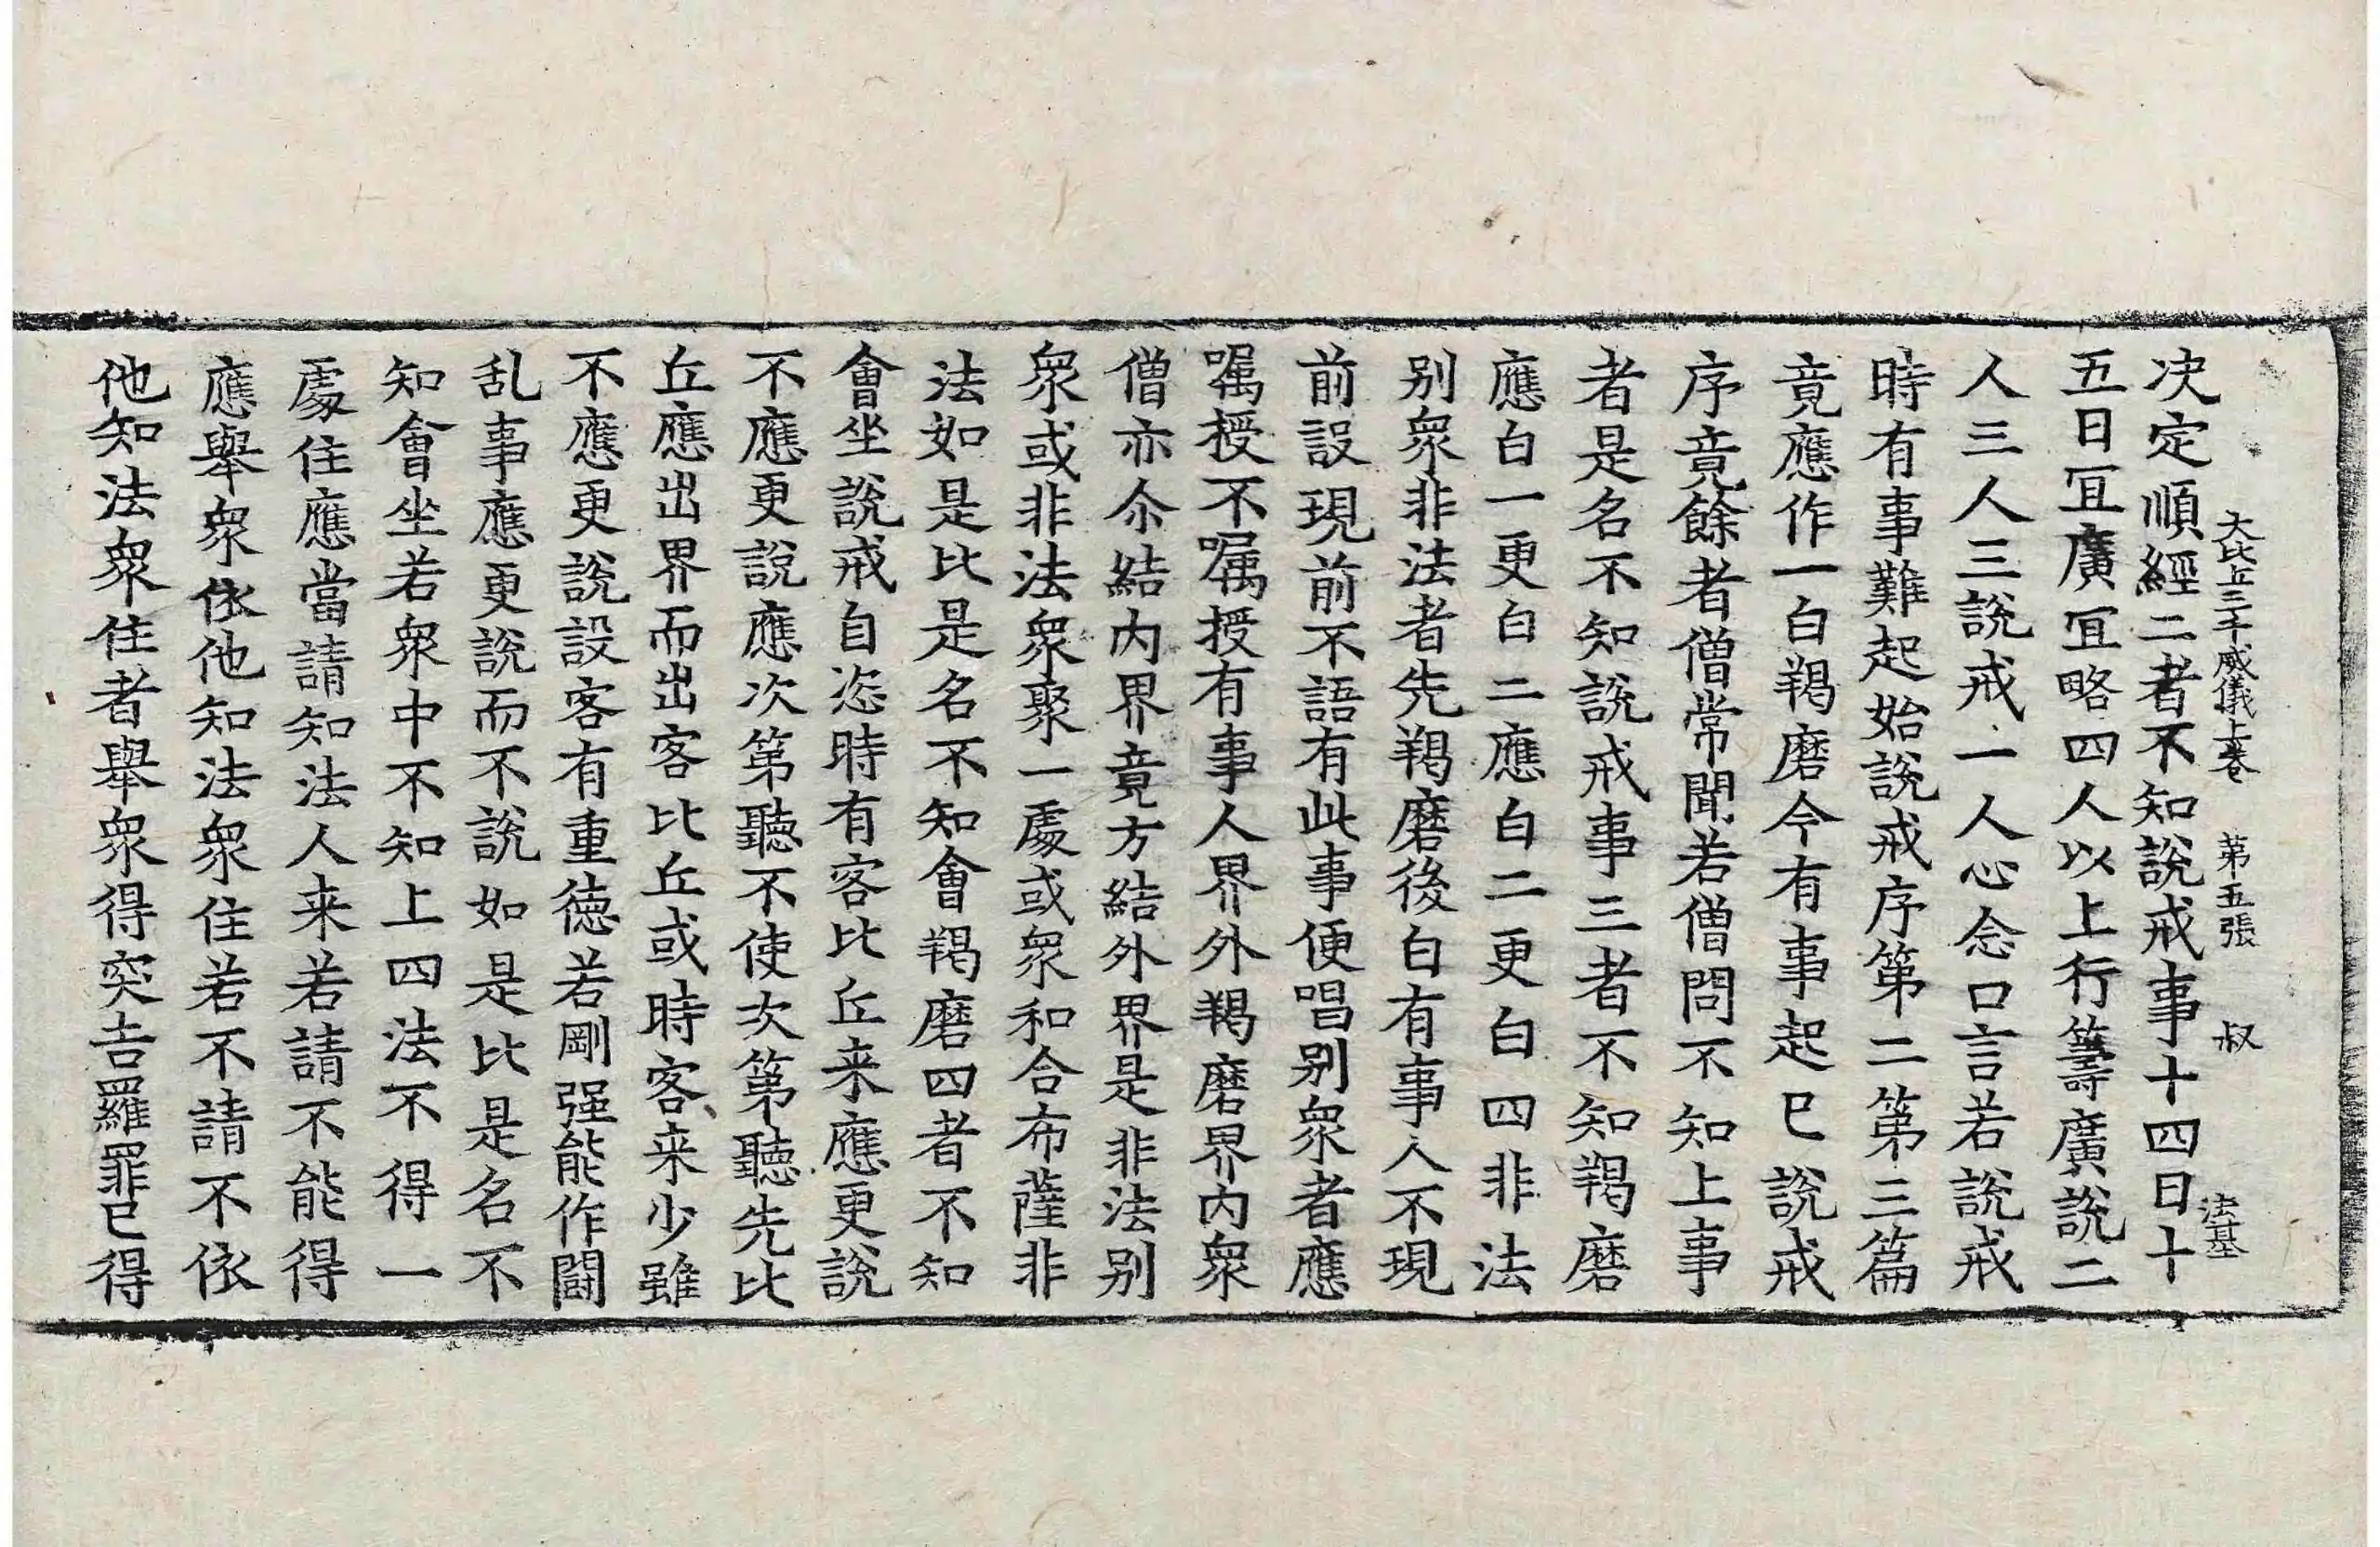 大比丘三千威儀上卷 第五張 叔 法基
决定順經二者不知說戒事十四日十
五日冝廣冝略四人以上行籌廣說二
人三人三說戒一人心念口言若說戒
時有事難起始說戒序第二第三篇
竟應作一白羯磨今有事起已說戒
序竟餘者僧常聞若僧問不知上事
者是名不知說戒事三者不知羯磨
應白一更白二應白二更白四非法
别衆非法者先羯磨後白有事人不現
前設現前不語有此事便唱别衆者應
嘱授不嘱授有事人界外羯磨界内衆
僧亦尒結内界竟方結外界是非法别
衆或非法衆聚一處或衆和合布薩非
法如是比是名不知會羯磨四者不知
會坐說戒自恣時有客比丘来應更說
不應更說應次第聽不使次第聽先比
丘應出界而出客比丘或時客来少雖
不應更說設客有重德若剛强能作鬪
乱事應更說而不說如是比是名不
知會坐若衆中不知上四法不得一
處住應當請知法人来若請不能得
應舉衆依他知法衆住若不請不依
他知法衆住者舉衆得突吉羅罪已得